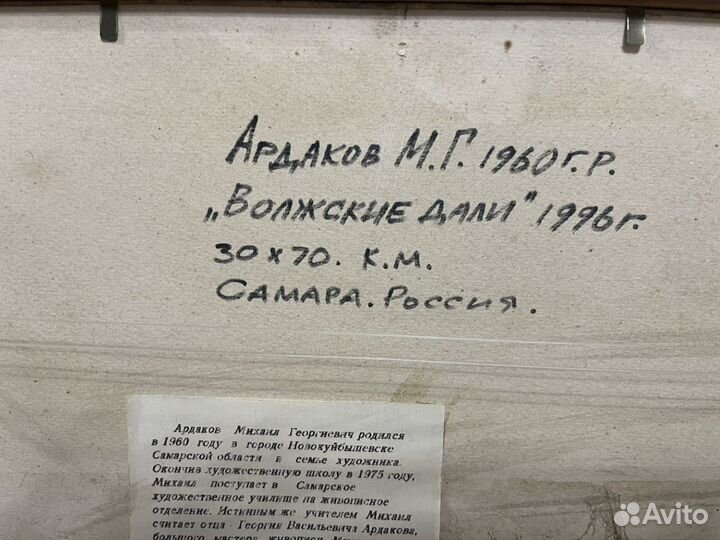 Ардаков М.Г. 1960г.р.
„Волжские дали" 1996г.
30х70. К.М.
Самара. Россия.
Ардаков Михаил Георгиевич родился
в 1960 году в городе Новокуйбышевске
Самарской области в семье художника.
Окончив художественную школу в 1975 году,
Михаил поступает в Самарское
художественное училище на живописное
отделение. Истинным же учителем Михаил
считает отца Георгия Васильевича Ардакова,
большого мастера живописи
Avito